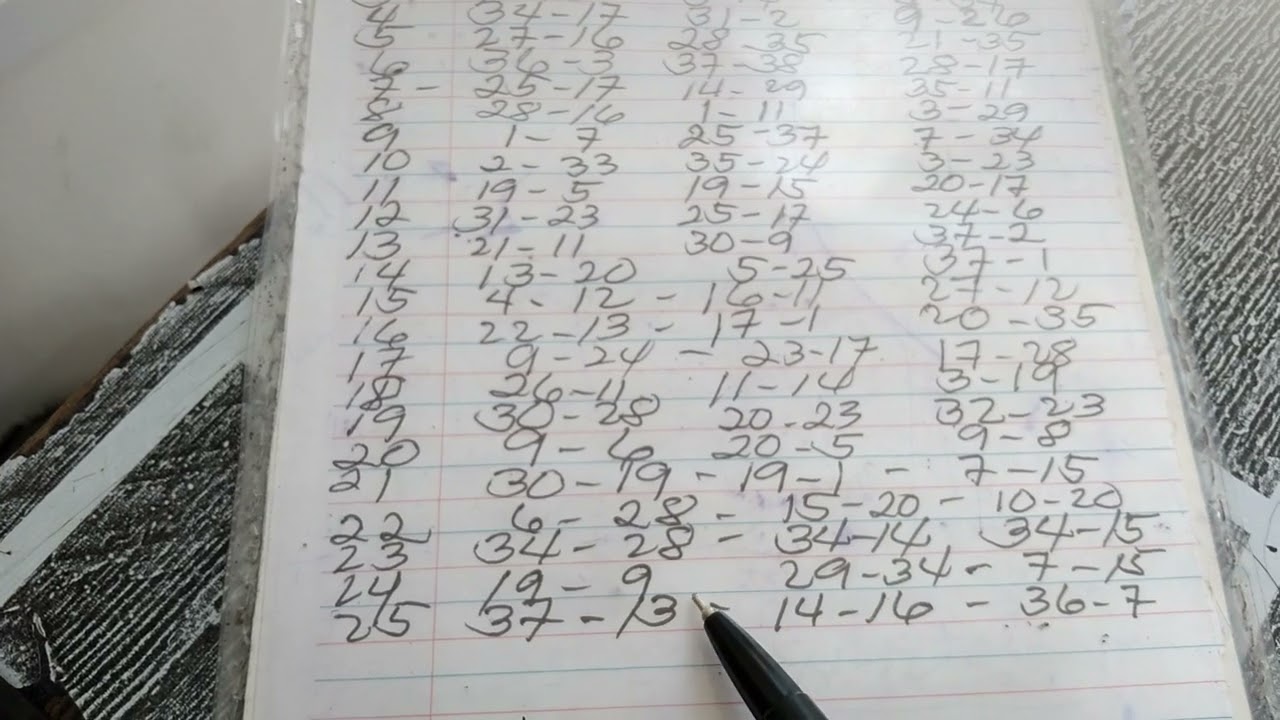 4 34-17 31-2 9-26
5 27-16 28-35 21-35
6 36-3 37-38 28-17
7 - 25-17 14-29 35-11
8 28-16 1-11 3-29
9 1-7 25-37 7-34
10 2-33 35-24 3-23
11 19-5 19-15 20-17
12 31-23 25-17 24-6
13 21-11 30-9 37-2
14 13-20 5-25 37-1
15 4-12 - 16-11 27-12
16 22-13 - 17-1 20-35
17 9-24 - 23-17 17-28
18 26-11 11-14 3-19
19 30-28 20-23 32-23
20 9-6 20-5 9-8
21 30-19 - 19-1 - 7-15
22 6-28 - 15-20 - 10-20
23 34-28 - 34-14 34-15
24 19-9 29-34 - 7-15
25 37-13 - 14-16 - 36-7